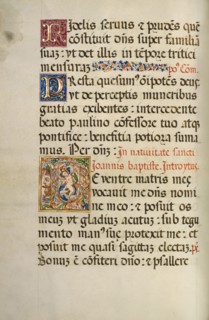 Fidelis seruus & prudẽs quẽ
cõstituit dñs super familiã
suaz: vt det illis in tẽpore tritici
mensuraz pꝰ Com.
Presta quesumꝰ oĩpotẽs deus
vt de perceptis muneribus
gratias exibentes: intercedente
beato paulino cõfessore tuo atqꝫ
pontifice: benefitia potiora suma
mus. Per dñz: In natiuitate sancti
Joannis baptiste. Introytus.
De ventre matris meę
vocauit me dñs nomi
ne meo: & posuit os
meuz vt gladius acutus: sub tegu
mento manꝰ suę protexit me: et
posuit me quasi sagittaz electaz. pĩ.
Bonuz ẽ cõfiteri dño: & psallere